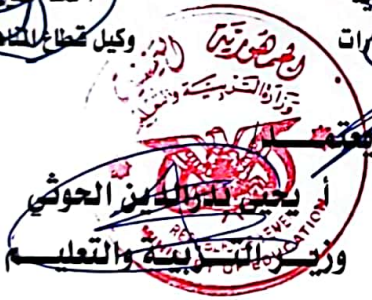 وكيل قطاع المناهج
رات
الجمهورية اليمنية
وزارة التربية والتعليم
يعتمد
أ يحيى بدرالدين الحوثي
وزير التربية والتعليم
OF EDUCATION